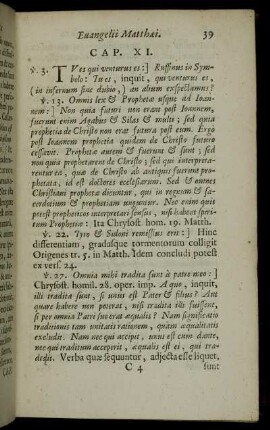 Evangelii Matthæi. 39
CAP. XI.
℣. 3. TV es qui venturus es:] Ruffinus in Sym-
bolo: Tu es, inquit, qui venturus es,
(in infernum sine dubio,) an alium expectamus?
℣. 13. Omnis lex & Prophetæ usque ad Ioan-
nem:] Non quia futuri non erant post Ioannem,
fuerunt enim Agabus & Silas & multi; sed quia
prophetia de Christo non erat futura post eum. Ergo
post Ioannem prophetia quidem de Christo futuro
cessavit. Prophetæ autem & fuerunt & sunt; sed
non quia prophetarent de Christo; sed qui interpreta-
rentur ea, quæ de Christo ab antiquis fuerant pro-
phetata, id est doctores ecclesiarum. Sed & omnes
Christiani prophetæ dicuntur, qui in regnum & sa-
cerdotium & prophetiam unguntur. Nec enim quis
potest propheticos interpretari sensus, nisi habeat spiri-
tum Prophetiæ: Ita Chrysost. hom. 19. Matth.
℣. 22. Tyro & Sidoni remissius erit:] Hinc
differentiam, gradusque tormentorum colligit
Origenes tr. 5. in Matth. Idem concludi potest
ex vers. 24.
℣. 27. Omnia mihi tradita sunt à patre meo:]
Chrysost. homil. 28. oper. imp. A quo, inquit,
illi tradita sunt, si unus est Pater & filius? Aut
quare habere non poterat, nisi tradita illi fuissent,
si per omnia Patri suo erat æqualis? Nam significatio
traditionis tam unitatis rationem, quàm æqualitatis
excludit. Nam nec qui accipit, unus est cum dante,
nec qui traditum acceperit, æqualis est ei, qui tra-
dedit. Verba quæ sequuntur, adjecta esse liquet,
C 4 sunt